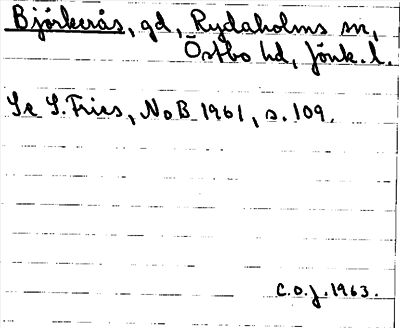 Björkerås, gd, Rydaholms sn,
Östbo hd, Jönk. l.
Se S. Fries, NoB 1961, s. 109.
C.O.J. 1963.